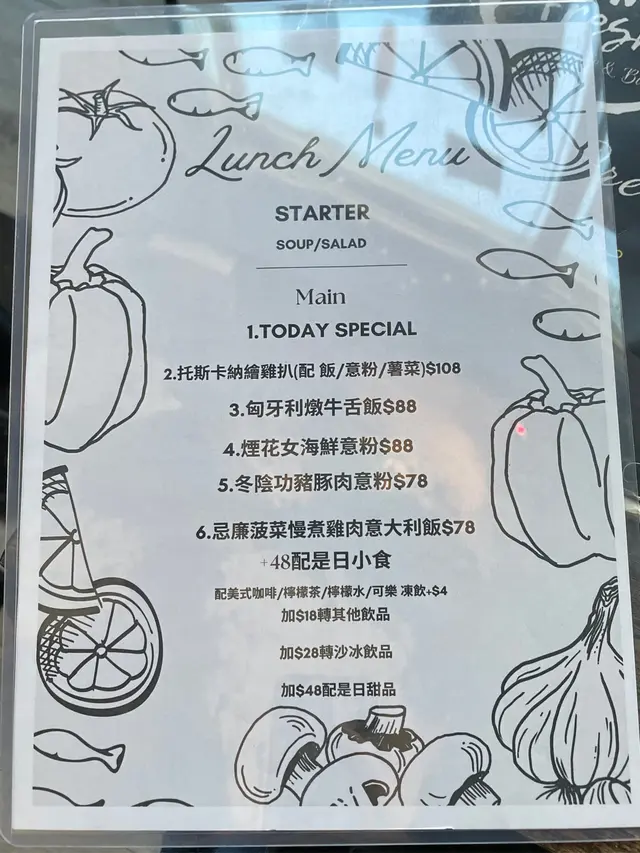 Lunch Menu
STARTER
SOUP/SALAD
Main
1.TODAY SPECIAL
2.托斯卡納繪雞扒(配 飯/意粉/薯菜)$108
3.匈牙利燉牛舌飯$88
4.煙花女海鮮意粉$88
5.冬陰功豬豚肉意粉$78
6.忌廉菠菜慢煮雞肉意大利飯$78
+48配是日小食
配美式咖啡/檸檬茶/檸檬水/可樂 凍飲+$4
加$18轉其他飲品
加$28轉沙冰飲品
加$48配是日甜品